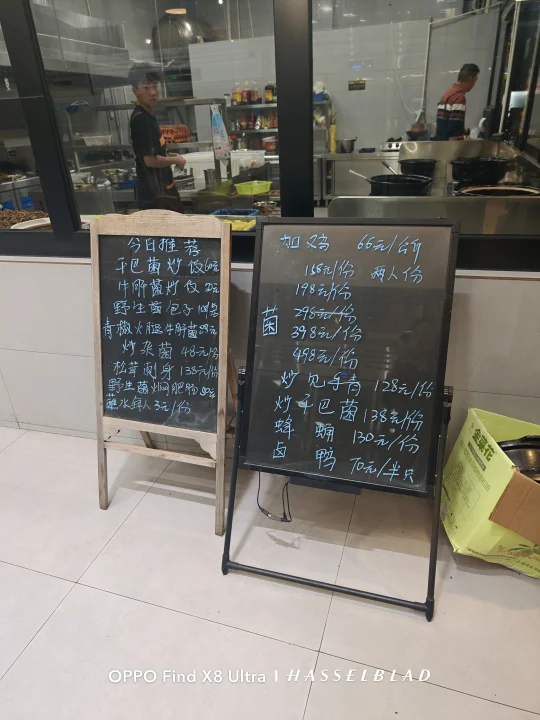 今日推荐
干巴菌炒饭60元
牛肝菌炒饭20元
野生菌包子
青椒火腿牛肝菌
炒杂菌 48元/份
松茸刺身 138元/份
野生菌焖肥肠
蘸水每人 3元/份
加鸡 66元/斤
168元/份 两人份
198元/份
菌 298元/份
398元/份
498元/份
炒见手青 128元/份
炒干巴菌 138元/份
蜂蛹 130元/份
卤鸭 70元/半只
OPPO Find X8 Ultra | HASSELBLAD